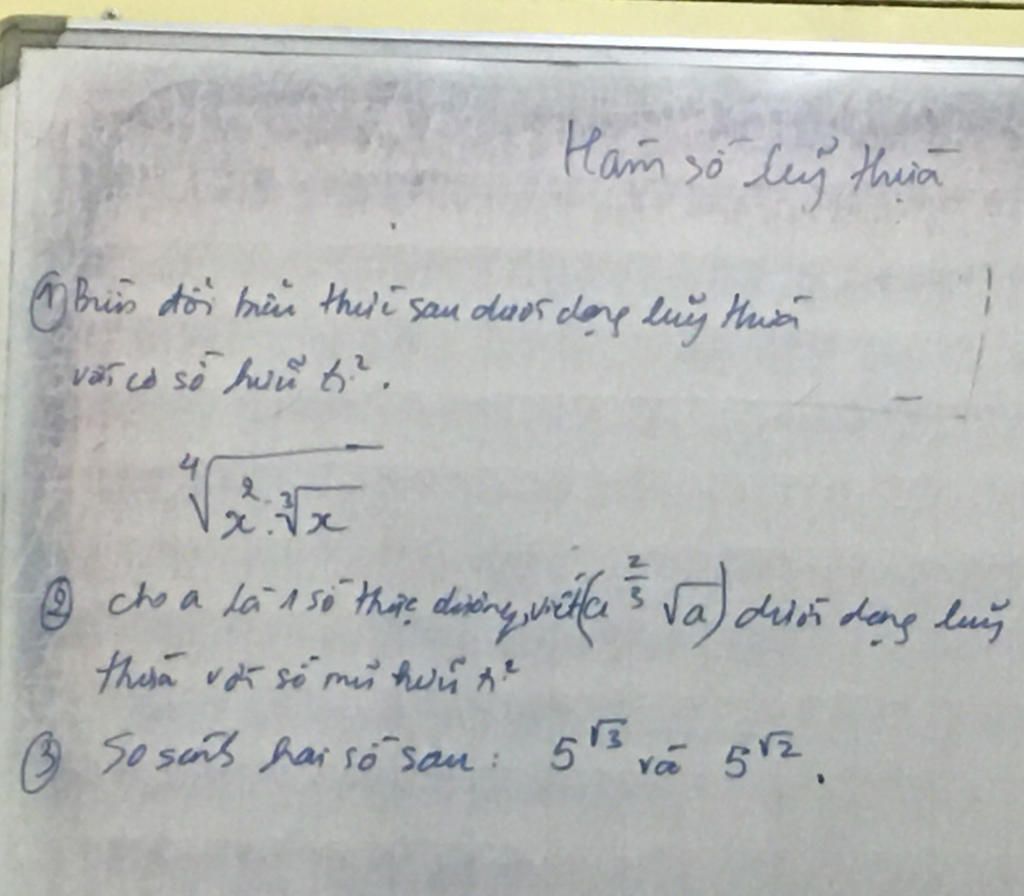 Hàm số luỹ thừa
① Biến đổi biểu thức sau dưới dạng luỹ thừa
với cơ số hữu tỉ.
⁴√(x².³√x)
② cho a là 1 số thực dương, viết (a^(2/3) √a) dưới dạng luỹ
thừa với số mũ hữu tỉ
③ So sánh hai số sau: 5^√3 và 5^√2.